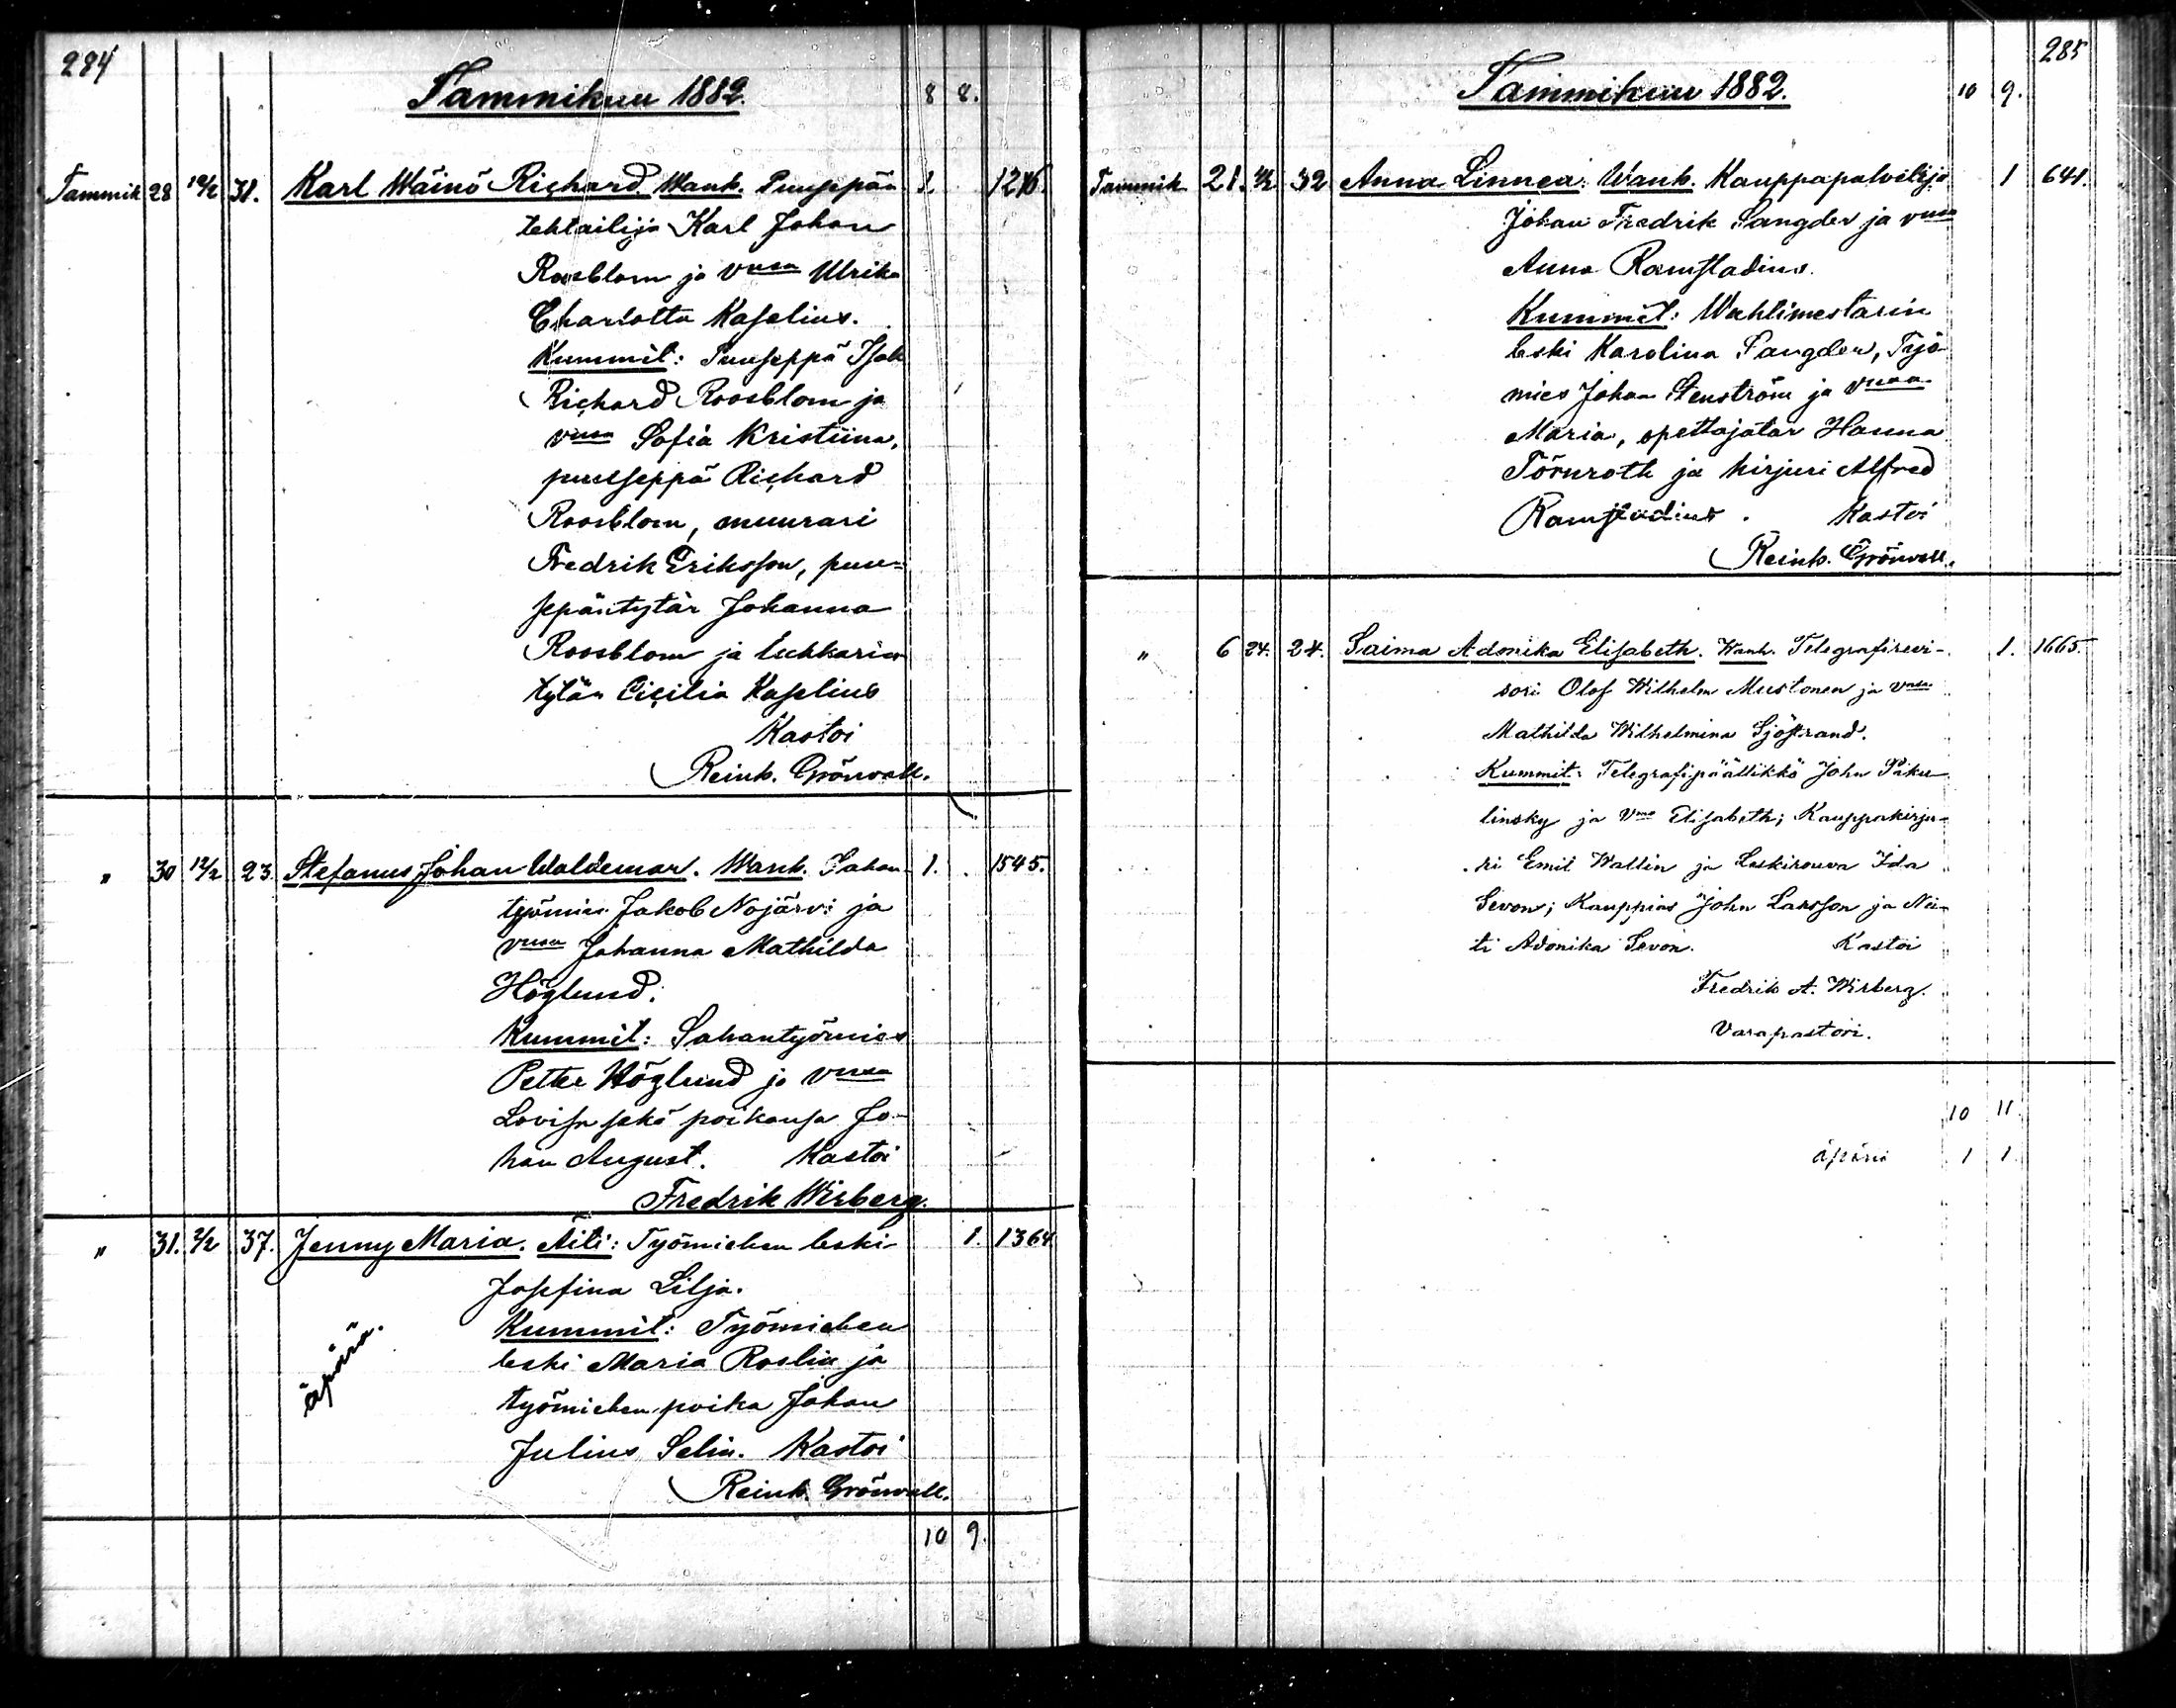 284
Tammikuu 1882.
8 8.
Tammik 28 12/2 31. Karl Wäinö Richard. Wanh. Puusepän 1. 1276.
tehtailija Karl Johan
Roosblom ja vmsa Ulrika
Charlotta Kaselius.
Kummit: Puuseppä Isak
Richard Roosblom ja
vmsa Sofia Kristiina,
puuseppä Richard
Roosblom, muurari
Fredrik Eriksson, puu=
sepäntytär Johanna
Roosblom ja lukkarin
tytär Cicilia Kaselius
Kastoi
Reinh. Grönvall.
" 30 12/2 23. Stefanus Johan Waldemar. Wanh. Sahan 1. 1545.
työmies Jakob Nojärvi ja
vmsa Johanna Mathilda
Höglund.
Kummit: Sahantyömies
Petter Höglund ja vmsa
Lovisa sekä poikansa Jo-
han August. Kastoi
Fredrik Wirberg.
" 31. 2/2 37. Jenny Maria. Äiti: Työmiehen leski 1. 1364.
Josefina Lilja.
Kummit: Työmiehen
äpärä.
leski Maria Roslin ja
työmiehen poika Johan
Julius Selin. Kastoi
Reinh. Grönvall.
10 9.
285
Tammikuu 1882.
10 9.
Tammik 21. 4/2 32 Anna Linnea. Wanh. Kauppapalvelija 1 641.
Johan Fredrik Sangder ja vmsa
Anna Ramstadius.
Kummit: Wahtimestarin
leski Karolina Sangder, Työ-
mies Johan Stenström ja vmsa
Maria, opettajatar Hanna
Törnroth ja kirjuri Alfred
Ramstadius. Kastoi
Reinh. Grönvall.
" 6 24. 24. Saima Adonika Elisabeth. Wanh. Telegrafirevi- 1. 1665.
sori Olof Wilhelm Mustonen ja vmsa
Mathilda Wilhelmina Sjöstrand.
Kummit: Telegrafipäällikkö John Piku-
linsky ja Vmsa Elisabeth; Kauppakirju-
ri Emil Wallin ja Leskirouva Ida
Sevon; Kauppias John Larsson ja Nei-
ti Adonika Sevon. Kastoi
Fredrik A. Wirberg.
Varapastori.
10 11.
äpäriä 1 1